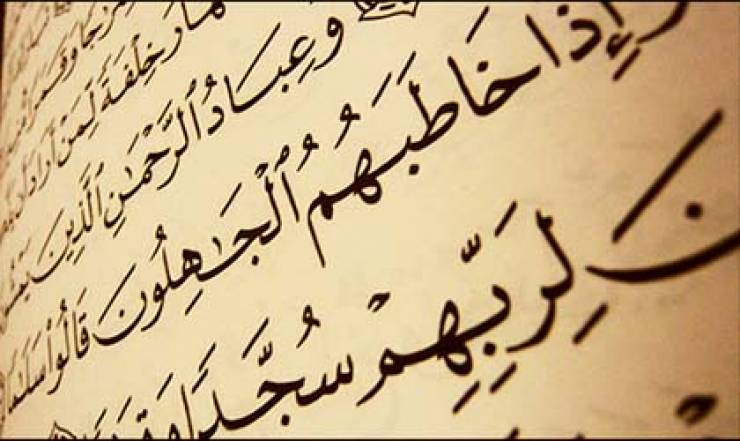 خِلْفَةً لِّمَنْ أَرَادَ أَن
وَعِبَادُ ٱلرَّحْمَٰنِ ٱلَّذِينَ يَمْشُ
وَإِذَا خَاطَبَهُمُ ٱلْجَٰهِلُونَ قَالُوا۟ سَلَٰمًا
نَ لِرَبِّهِمْ سُجَّدًا وَقِيَ